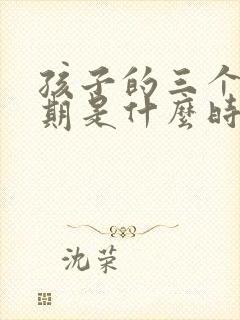 孩子的三个
期是什麼時
沈荣